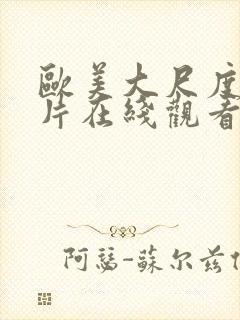 歐美大尺度
片在綫觀看
阿瑟-蘇尔兹